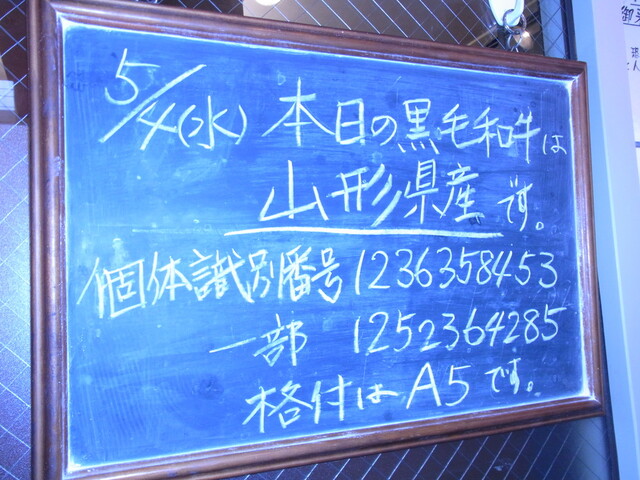 5/4(水) 本日の黒毛和牛は
山形県産です。
個体識別番号 1236358453
一部 1252364285
格付はA5です。